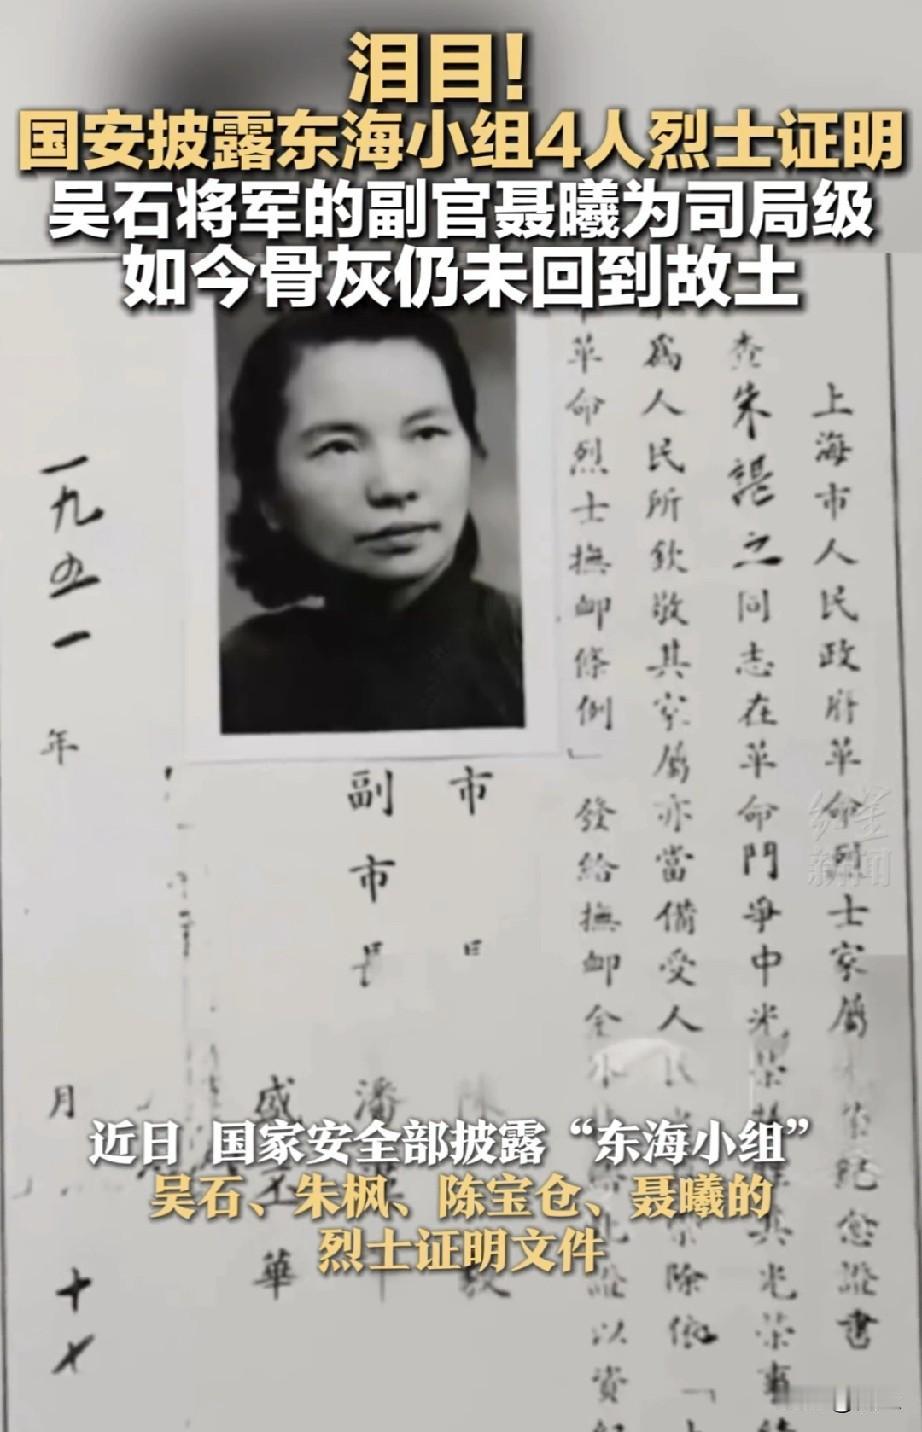 泪目!
国安披露东海小组4人烈士证明
吴石将军的副官聂曦为司局级
如今骨灰仍未回到故土
上海市人民政府革命烈士家屬紀念證書
查朱諶之同志在革命鬥爭中光榮其光榮事
爲人民所欽敬其家屬亦當備受人除依「
革命烈士撫卹條例」發給撫卹金證以資
市
副市長潘
盛華
一九五一年月十七
红星新闻
近日 国家安全部披露“东海小组”
吴石、朱枫、陈宝仓、聂曦的
烈士证明文件